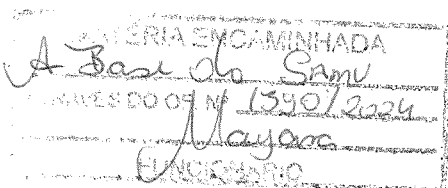 MATÉRIA ENCAMINHADA
A Base do SAMU
ATRAVÉS DO OF. Nº 1390/2024
Mayara
FUNCIONÁRIO